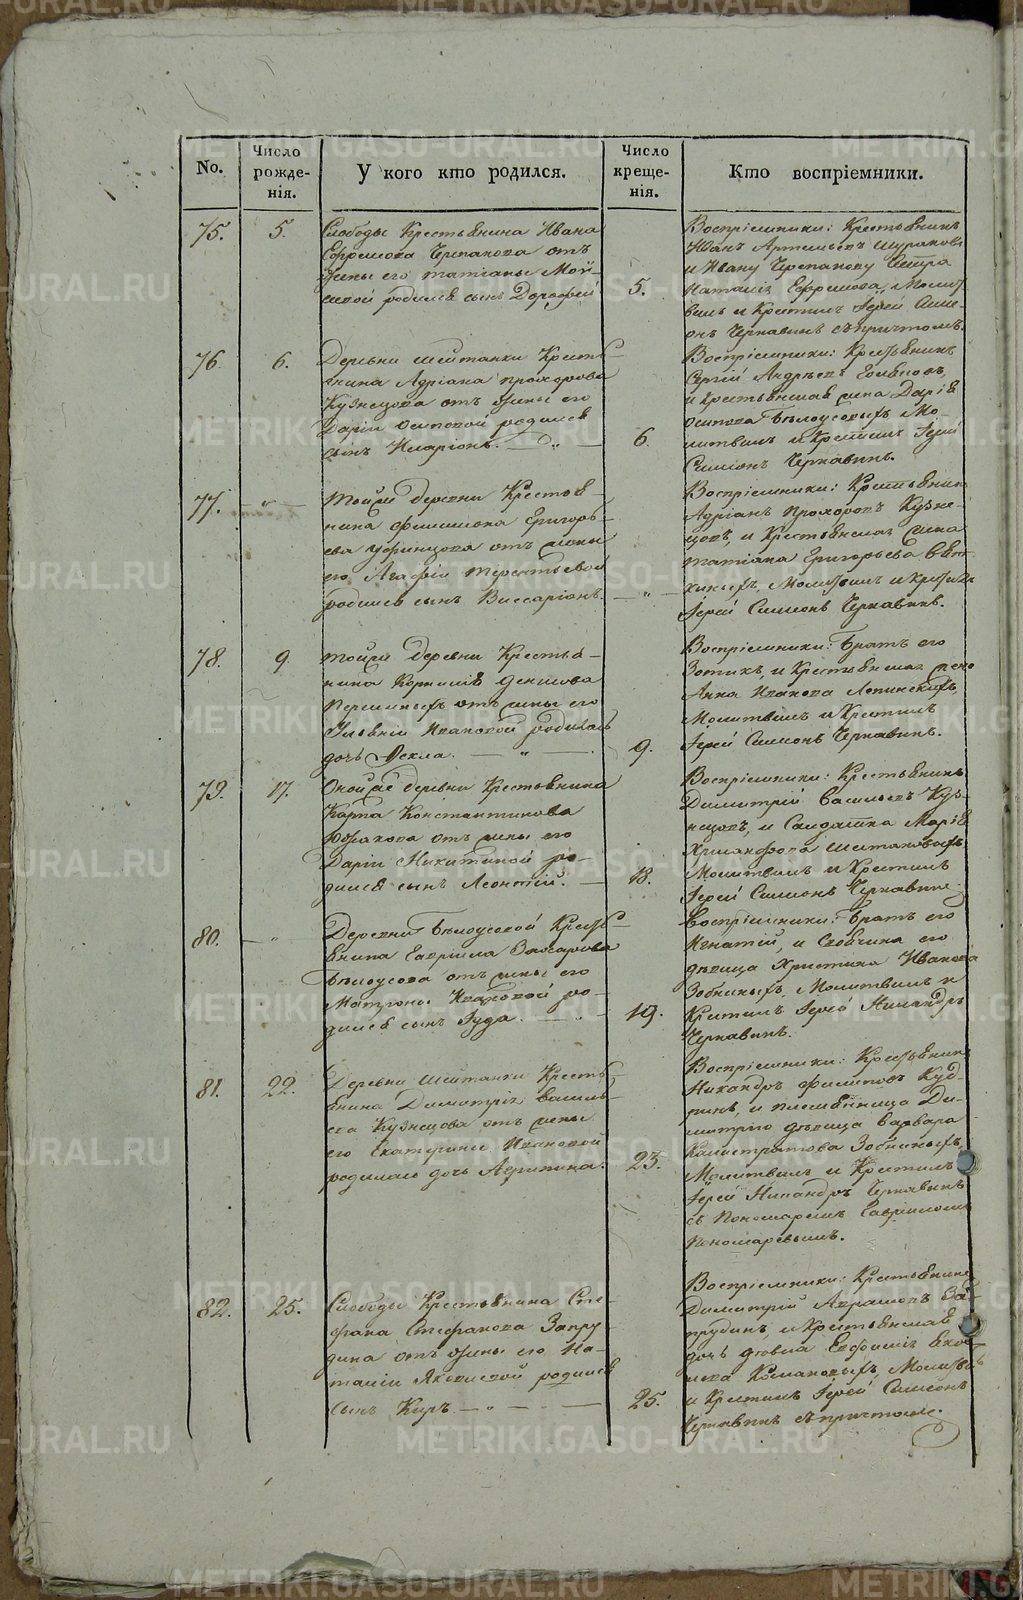 No.
Число рожденія.
У кого кто родился.
Число крещенія.
Кто воспріемники.
75.
5.
Слободы Крестьянина Ивана
Ефремова Черпакова отъ
жены его Татіаны Мои-
сеевой родился сынъ Дорофей
5.
Воспріемники: Крестьянинъ
Иванъ Артемьевъ
и Ивану Черпакову сестра
Наталія Ефремова, Молит
вилъ и Крестилъ Іерей Симе-
онъ Чернавинъ съ причтомъ.
76.
6.
Деревни Шейтанки Кресть-
янина Адріана Прохорова
Кузнецова отъ жены его
Даріи Осиповой родился
сынъ Иларіонъ.
6.
Воспріемники: Крестьянинъ
Сергій Андреевъ
и Крестьянская жена Дарія
Осипова Белоусовыхъ Мо
литвилъ и Крестилъ Іерей
Симеонъ Чернавинъ.
77.
"
Тойже деревни Крестья-
нина Филимона Григорь-
ева Уфинцова отъ жены
его Агафіи Терентьевой
родился сынъ Виссаріонъ.
"
Воспріемники: Крестьянинъ
Адріанъ Прохоровъ Кузне-
цовъ, и Крестьянская жена
Татіана Григорьева
Молитвилъ и крестилъ
Іерей Симеонъ Чернавинъ.
78.
9.
Тойже деревни Крестья-
нина Корнилія Денисова
Першиныхъ отъ жены его
Улявніи Ивановой родилась
дочь Фекла. "
9.
Воспріемники: Братъ его
Зотикъ, и Крестьянская жена
Анна Иванова Лепинскихъ
Молитвилъ и Крестилъ
Іерей Симеонъ Чернавинъ.
79.
17.
Онойже деревни Крестьянина
Карпа Константинова
отъ жены его
Даріи Никитиной ро-
дился сынъ Леонтій.
18.
Воспріемники: Крестьянинъ
Димитрій Васильевъ Куз-
нецовъ, и Салдатка Марія
Молитвилъ и Крестилъ
Іерей Симеонъ Чернавинъ.
80.
"
Деревни Белоусовой Кресть-
янина Гавріила Захарова
Белоусова отъ жены его
Матроны Ивановой ро-
дился сынъ Іуда.
19.
Воспріемники: Братъ его
Игнатій, и
девица Христина Иванова
Зобниныхъ, Молитвилъ и
Крестилъ Іерей Никандръ
Чернавинъ.
81.
22.
Деревни Шейтанки Кресть-
янина Димитрія Василь-
ева Кузнецова отъ жены
его Екатерины Ивановой
родилась дочь Агрипина.
23.
Воспріемники: Крестьянинъ
Никандръ Филиповъ Куд-
ринъ, и племянница Ди-
митрію девица Варвара
Калистратова Зобниныхъ,
Молитвилъ и Крестилъ
Іерей Никандръ Чернавинъ
съ Пономаремъ Гавріиломъ
Пономаревымъ.
82.
25.
Слободы Крестьянина Сте-
фана Стефанова Запру-
дина отъ жены его На-
таліи Яковлевой родился
сынъ Киръ. "
25.
Воспріемники: Крестьянинъ
Димитрій Абрамовъ За-
прудинъ, и Крестьянская
дочь девица Евфимія
Молитвилъ
и Крестилъ Іерей Симеонъ
Чернавинъ съ причтомъ.
METRIKI.GASO-URAL.RU